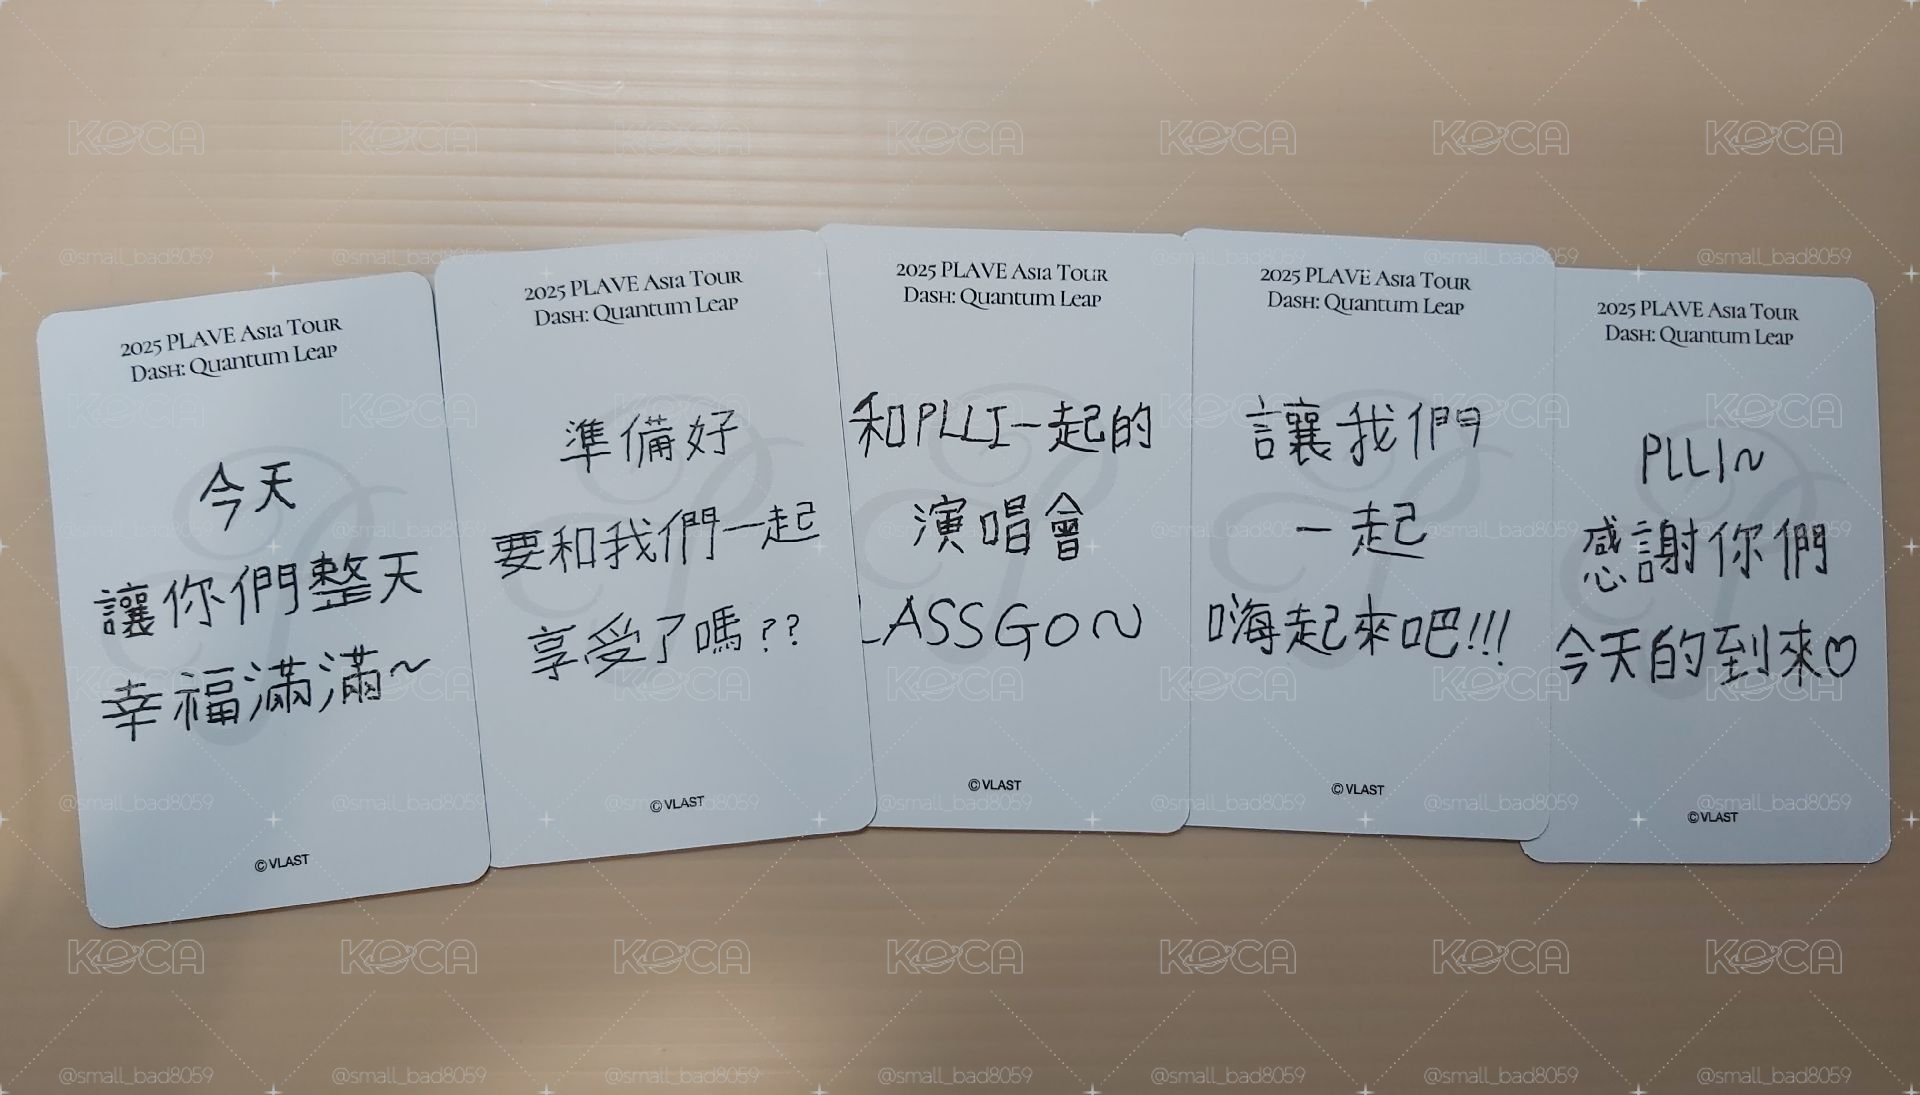 2025 PLAVE Asia Tour
Dash: Quantum Leap
今天
讓你們整天
幸福滿滿~
© VLAST
2025 PLAVE Asia Tour
Dash: Quantum Leap
準備好
要和我們一起
享受了嗎??
© VLAST
2025 PLAVE Asia Tour
Dash: Quantum Leap
和PLLI一起的
演唱會
LASSGO~
© VLAST
2025 PLAVE Asia Tour
Dash: Quantum Leap
讓我們
一起
嗨起來吧!!!
© VLAST
2025 PLAVE Asia Tour
Dash: Quantum Leap
PLLI~
感謝你們
今天的到來♡
© VLAST
KOCA
@small_bad8059